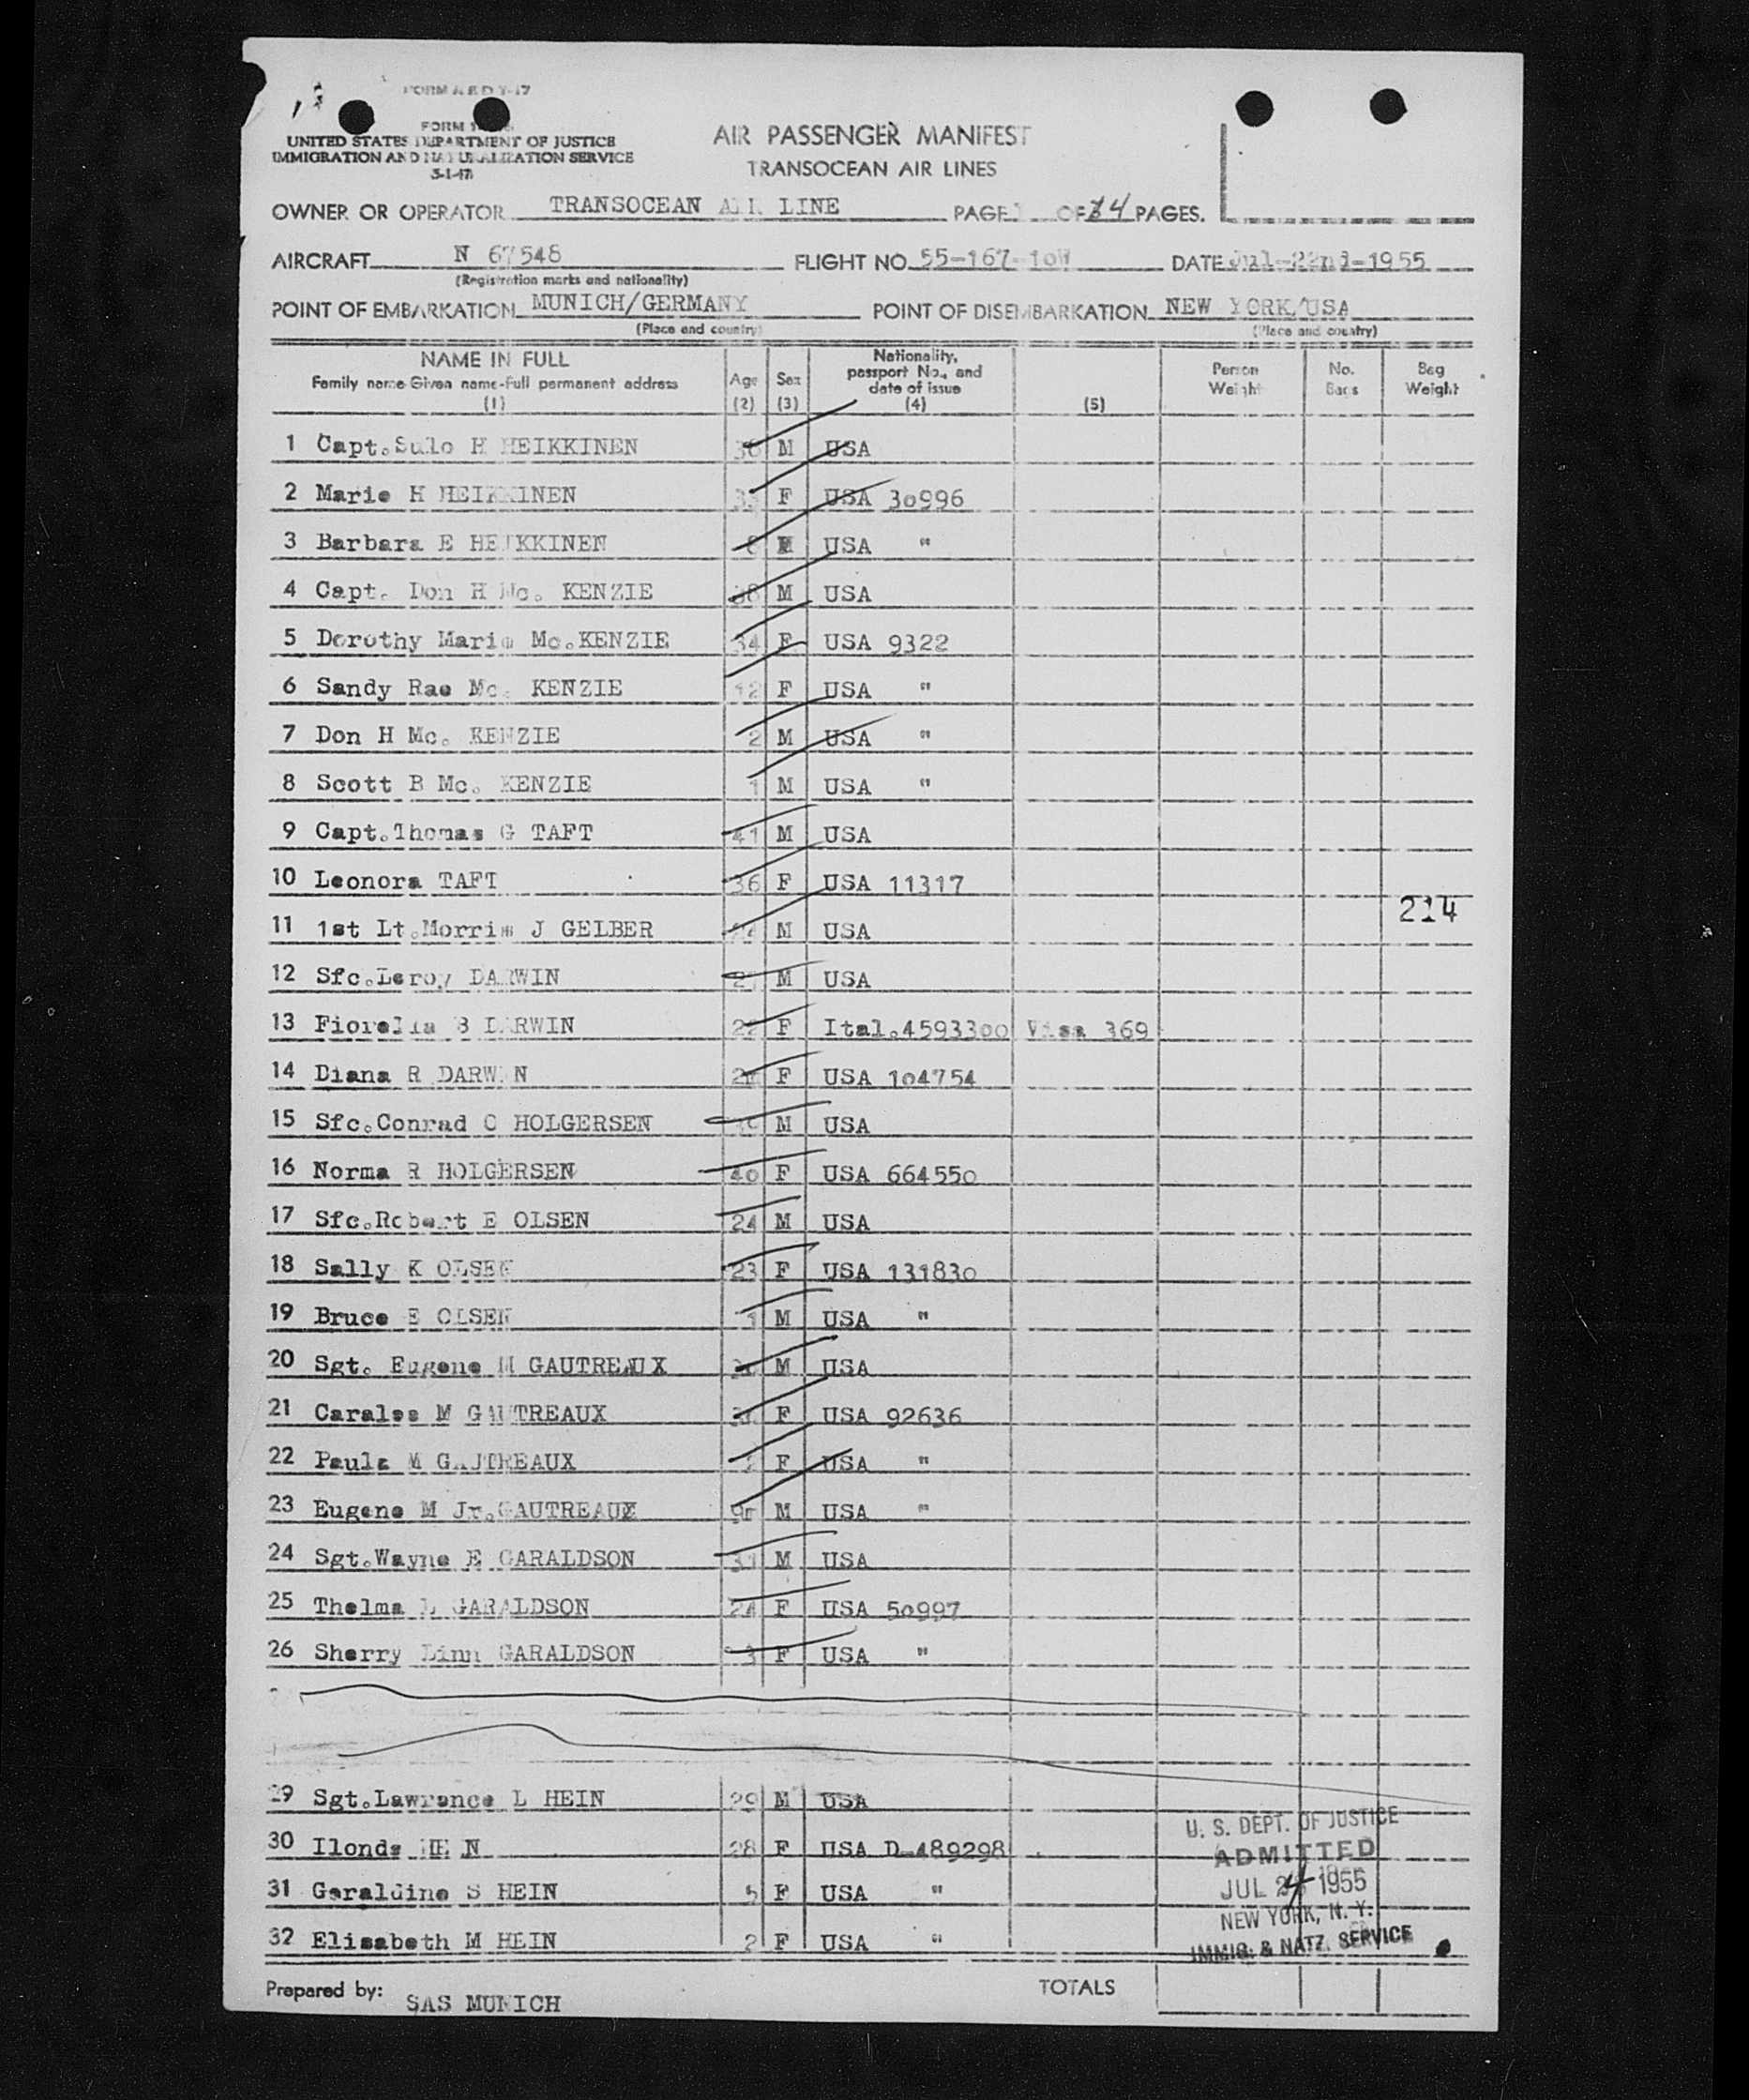 FORM A E D 9-17
UNITED STATES DEPARTMENT OF JUSTICE
IMMIGRATION AND NATURALIZATION SERVICE
AIR PASSENGER MANIFEST
TRANSOCEAN AIR LINES
OWNER OR OPERATOR TRANSOCEAN AIR LINE PAGE 1 OF 4 PAGES.
AIRCRAFT N 67548 FLIGHT NO 55-167-10W DATE Jul-22nd-1955
(Registration marks and nationality)
POINT OF EMBARKATION MUNICH/GERMANY POINT OF DISEMBARKATION NEW YORK/USA
(Place and country) (Place and country)
NAME IN FULL
Family name-Given name-Full permanent address
(1)
Age
(2)
Sex
(3)
Nationality,
passport No., and
date of issue
(4)
(5)
Person
Weight
No.
Bags
Bag
Weight
1 Capt.Sulo H HEIKKINEN M USA
2 Marie H HEIKKINEN F USA 30996
3 Barbara E HEIKKINEN USA "
4 Capt. Don H Mc. KENZIE 38 M USA
5 Dorothy Marie Mc.KENZIE 34 F USA 9322
6 Sandy Rae Mc. KENZIE 12 F USA "
7 Don H Mc. KENZIE 2 M USA "
8 Scott B Mc. KENZIE 1 M USA "
9 Capt.Thomas G TAFT 41 M USA
10 Leonora TAFT 36 F USA 11317
214
11 1st Lt.Morris J GELBER M USA
12 Sfc.Leroy DARWIN M USA
13 Fiorella B DARWIN 22 F Ital.4593300 Visa 369
14 Diana R DARWIN F USA 104754
15 Sfc.Conrad C HOLGERSEN M USA
16 Norma R HOLGERSEN 40 F USA 664550
17 Sfc.Robert E OLSEN 24 M USA
18 Sally K OLSEN 23 F USA 131830
19 Bruce E OLSEN 1 M USA "
20 Sgt. Eugene M GAUTREAUX M USA
21 Caralee M GAUTREAUX F USA 92636
22 Paula M GAUTREAUX F USA "
23 Eugene M Jr.GAUTREAUX M USA "
24 Sgt.Wayne E GARALDSON 31 M USA
25 Thelma L GARALDSON 24 F USA 50997
26 Sherry Linn GARALDSON 3 F USA "
29 Sgt.Lawrence L HEIN 29 M USA
30 Ilonds HEIN 28 F USA D-489298
31 Geraldine S HEIN 5 F USA "
32 Elisabeth M HEIN 2 F USA "
U. S. DEPT. OF JUSTICE
ADMITTED
JUL 24 1955
NEW YORK, N. Y.
IMMIG. & NATZ. SERVICE
Prepared by: SAS MUNICH TOTALS